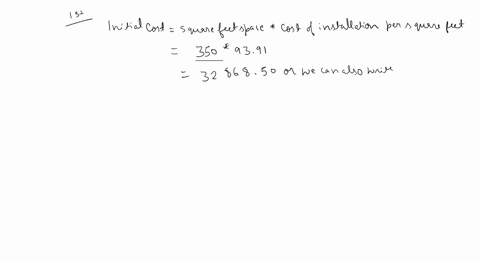 1st
Initial Cost = square feet space * cost of installation per square feet
= 350 * 93.91
= 32 868.50 or we can also write